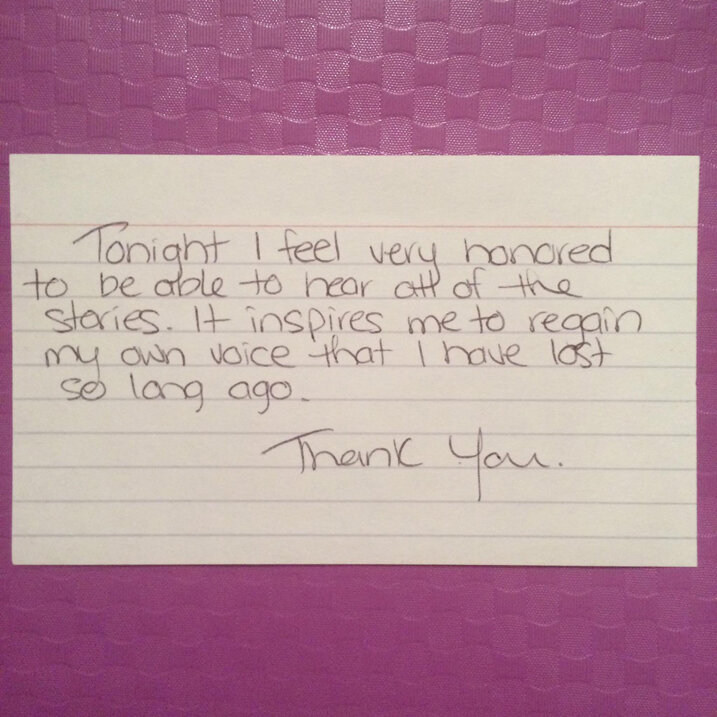 Tonight I feel very honored
to be able to hear all of the
stories. It inspires me to regain
my own voice that I have lost
so long ago.
Thank You.